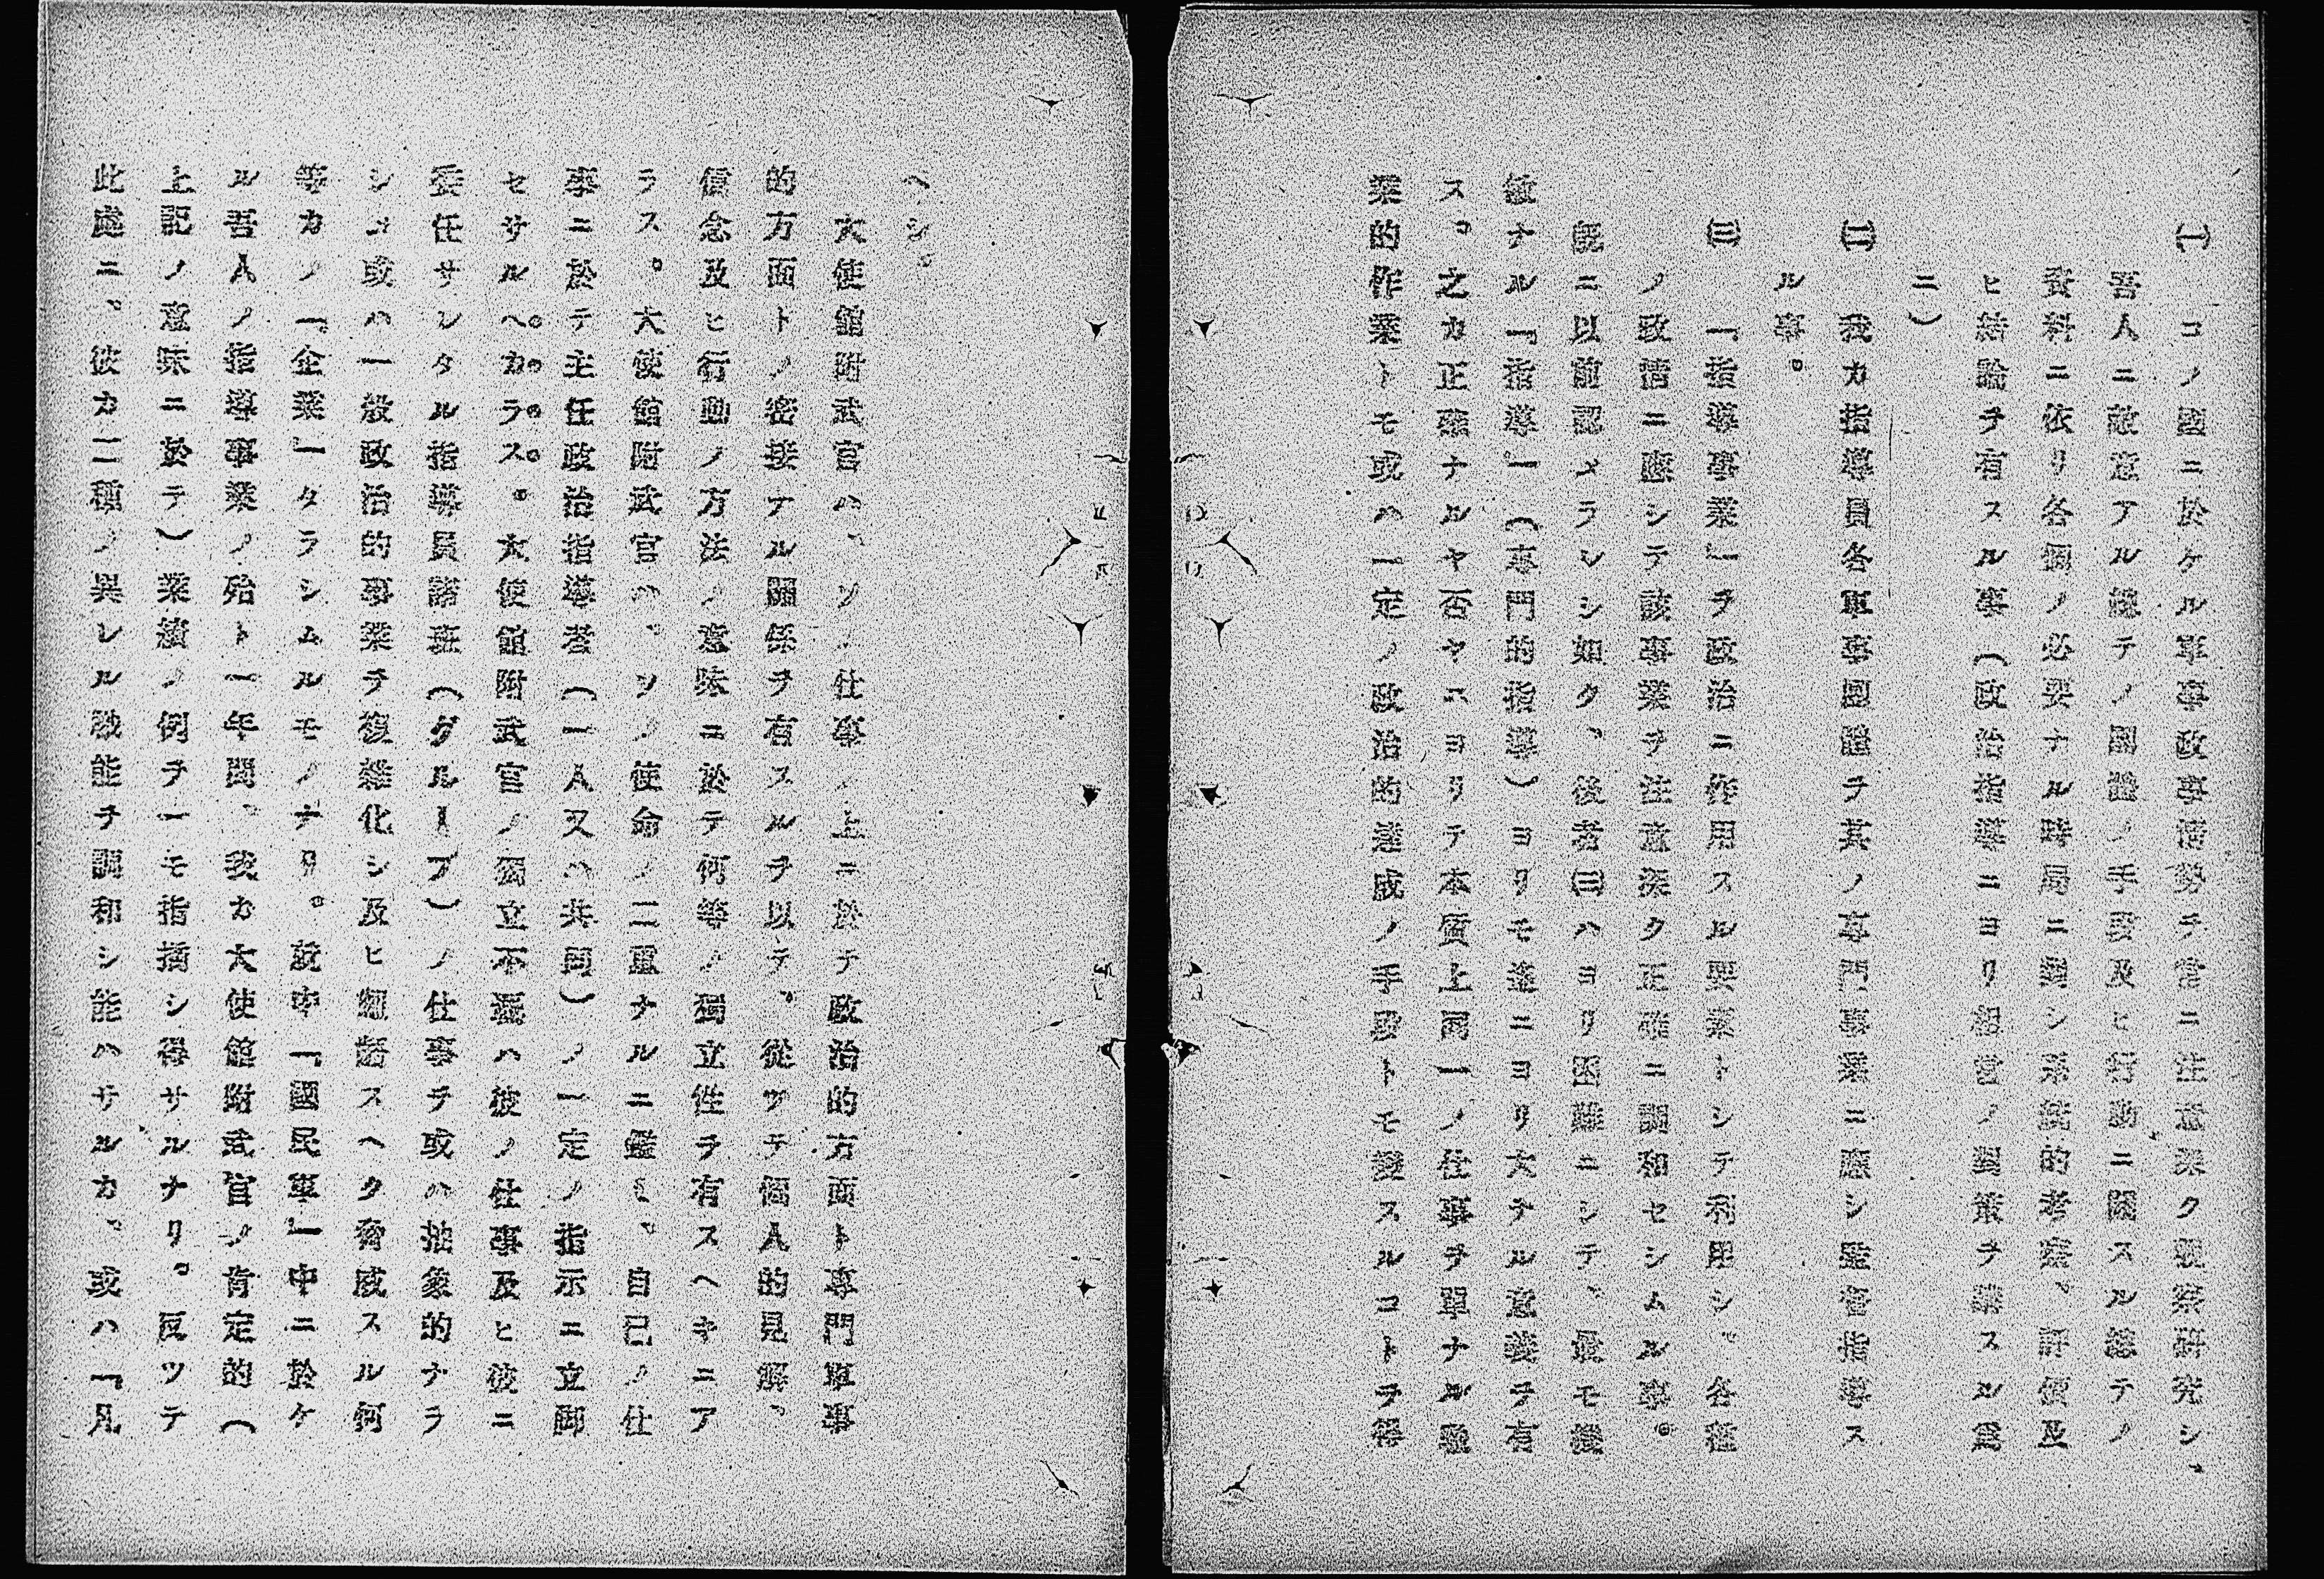 ㈠ コノ國ニ於ケル軍事政事情勢ヲ常ニ注意深ク視察研究シ、
吾人ニ敵意アル總テノ團體ノ手段及ヒ行動ニ關スル總テノ
資料ニ依リ各個ノ必要ナル時局ニ關シ系統的考慮、評價及
ヒ結論ヲ有スル事（政治指導ニヨリ相當ノ對策ヲ講スル爲
ニ）
㈡ 我カ指導員各軍事團體ヲ其ノ專門事業ニ應シ監督指導ス
ル事。
㈢ 「指導事業」ヲ政治ニ作用スル要素トシテ利用シ、各種
ノ政情ニ應シテ該事業ヲ注意深ク正確ニ調和セシムル事。
既ニ以前認メラレシ如ク、後者㈢ハヨリ困難ニシテ、最モ機
敏ナル「指導」（專門的指導）ヨリモ遙ニヨリ大ナル意義ヲ有
ス。之カ正確ナルヤ否ヤニヨリテ本質上同一ノ仕事ヲ單ナル職
業的作業トモ或ハ一定ノ政治的達成ノ手段トモ變スルコトヲ得
ヘシ。
大使館附武官ハ、ソノ仕事ノ上ニ於テ政治的方面ト專門軍事
的方面トノ密接ナル關係ヲ有スルヲ以テ、從ツテ個人的見解、
信念及ヒ行動ノ方法ノ意味ニ於テ何等ノ獨立性ヲ有スヘキニア
ラス。大使館附武官ハ、ソノ使命ノ二重ナルニ鑑ミ、自己ノ仕
事ニ於テ主任政治指導者（一人又ハ共同）ノ一定ノ指示ニ立脚
セサルヘカラス。大使館附武官ノ獨立不羈ハ彼ノ仕事及ヒ彼ニ
委任サレタル指導員諸班（グループ）ノ仕事ヲ或ハ抽象的ナラ
シメ或ハ一般政治的事業ヲ複雜化シ及ヒ顚語スヘク脅威スル何
等カノ「企業」タラシムルモノナリ。故中「國民軍」中ニ於ケ
ル吾人ノ指導事業ノ殆ト一年間、我カ大使館附武官ノ肯定的（
上記ノ意味ニ於テ）業績ノ例ヲ一モ指摘シ得サルナリ。反ツテ
此處ニ、彼カ二種ノ異レル職能ヲ調和シ能ハサルカ、或ハ「凡